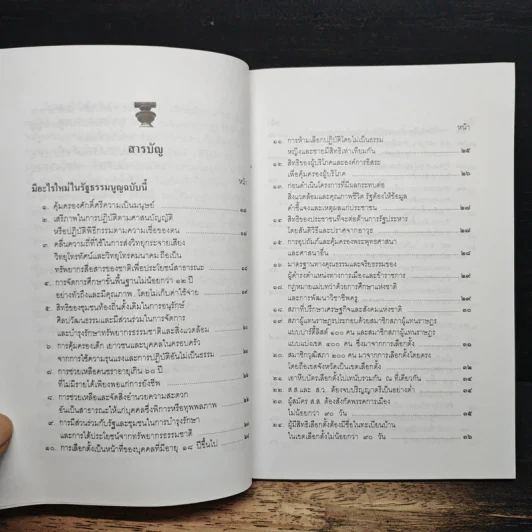 สารบัญ
หน้า
มีอะไรใหม่ในรัฐธรรมนูญฉบับนี้
๑. คุ้มครองศักดิ์ศรีความเป็นมนุษย์
๒. เสรีภาพในการปฏิบัติตามศาสนบัญญัติ
หรือปฏิบัติพิธีกรรมตามความเชื่อของตน
๓. คลื่นความถี่ที่ใช้ในการส่งวิทยุกระจายเสียง
วิทยุโทรทัศน์และวิทยุโทรคมนาคม ถือเป็น
ทรัพยากรสื่อสารของชาติเพื่อประโยชน์สาธารณะ
๔. การจัดการศึกษาขั้นพื้นฐานไม่น้อยกว่า ๑๒ ปี
อย่างทั่วถึงและมีคุณภาพ โดยไม่เก็บค่าใช้จ่าย
๕. สิทธิของชุมชนท้องถิ่นดั้งเดิมในการอนุรักษ์
ศิลปวัฒนธรรมและมีส่วนร่วมในการจัดการ
และบำรุงรักษาทรัพยากรธรรมชาติและสิ่งแวดล้อม
๖. การคุ้มครองเด็ก เยาวชนและบุคคลในครอบครัว
จากการใช้ความรุนแรงและการปฏิบัติอันไม่เป็นธรรม
๗. การช่วยเหลือคนชราอายุเกิน ๖๐ ปี
ที่ไม่มีรายได้เพียงพอแก่การยังชีพ
๘. การช่วยเหลือและจัดสิ่งอำนวยความสะดวก
อันเป็นสาธารณะให้แก่บุคคลซึ่งพิการหรือทุพพลภาพ
๙. การมีส่วนร่วมกับรัฐและชุมชนในการบำรุงรักษา
และการได้ประโยชน์จากทรัพยากรธรรมชาติ
๑๐. การเลือกตั้งเป็นหน้าที่ของบุคคลที่มีอายุ ๑๘ ปีขึ้นไป
หน้า
๑๑. การห้ามเลือกปฏิบัติโดยไม่เป็นธรรม
หญิงและชายมีสิทธิเท่าเทียมกัน ๒๕
๑๒. สิทธิของผู้บริโภคและองค์การอิสระ
เพื่อคุ้มครองผู้บริโภค ๒๖
๑๓. ก่อนดำเนินโครงการที่มีผลกระทบต่อ
สิ่งแวดล้อมและคุณภาพชีวิต รัฐต้องให้ข้อมูล
คำชี้แจงและเหตุผลแก่ประชาชน ๒๗
๑๔. สิทธิของประชาชนที่จะต่อต้านการรัฐประหาร
โดยสันติวิธีและปราศจากอาวุธ ๒๗
๑๕. การอุปถัมภ์และคุ้มครองพระพุทธศาสนา
และศาสนาอื่น ๒๘
๑๖. มาตรฐานทางคุณธรรมและจริยธรรมของ
ผู้ดำรงตำแหน่งทางการเมืองและข้าราชการ
๑๗. กฎหมายแม่บทว่าด้วยการศึกษาแห่งชาติ
และการพัฒนาวิชาชีพครู ๒๙
๑๘. สภาที่ปรึกษาเศรษฐกิจและสังคมแห่งชาติ ๓๐
๑๙. สภาผู้แทนราษฎรประกอบด้วยสมาชิกสภาผู้แทนราษฎร
แบบปาร์ตี้ลิสต์ ๑๐๐ คน และสมาชิกสภาผู้แทนราษฎร
แบบแบ่งเขต ๔๐๐ คน ซึ่งมาจากการเลือกตั้ง
๒๐. สมาชิกวุฒิสภา ๒๐๐ คน มาจากการเลือกตั้งโดยตรง
โดยถือเขตจังหวัดเป็นเขตเลือกตั้ง
๒๑. เอาหีบบัตรเลือกตั้งไปเทนับรวมกัน ณ ที่เดียวกัน
๒๒. ส.ส. และ ส.ว. ต้องจบปริญญาตรีเป็นอย่างต่ำ
๒๓. ผู้สมัคร ส.ส. ต้องสังกัดพรรคการเมือง
ไม่น้อยกว่า ๙๐ วัน ๓๕
๒๔. ผู้มีสิทธิเลือกตั้งต้องมีชื่อในทะเบียนบ้าน
ในเขตเลือกตั้งไม่น้อยกว่า ๙๐ วัน ๓๖